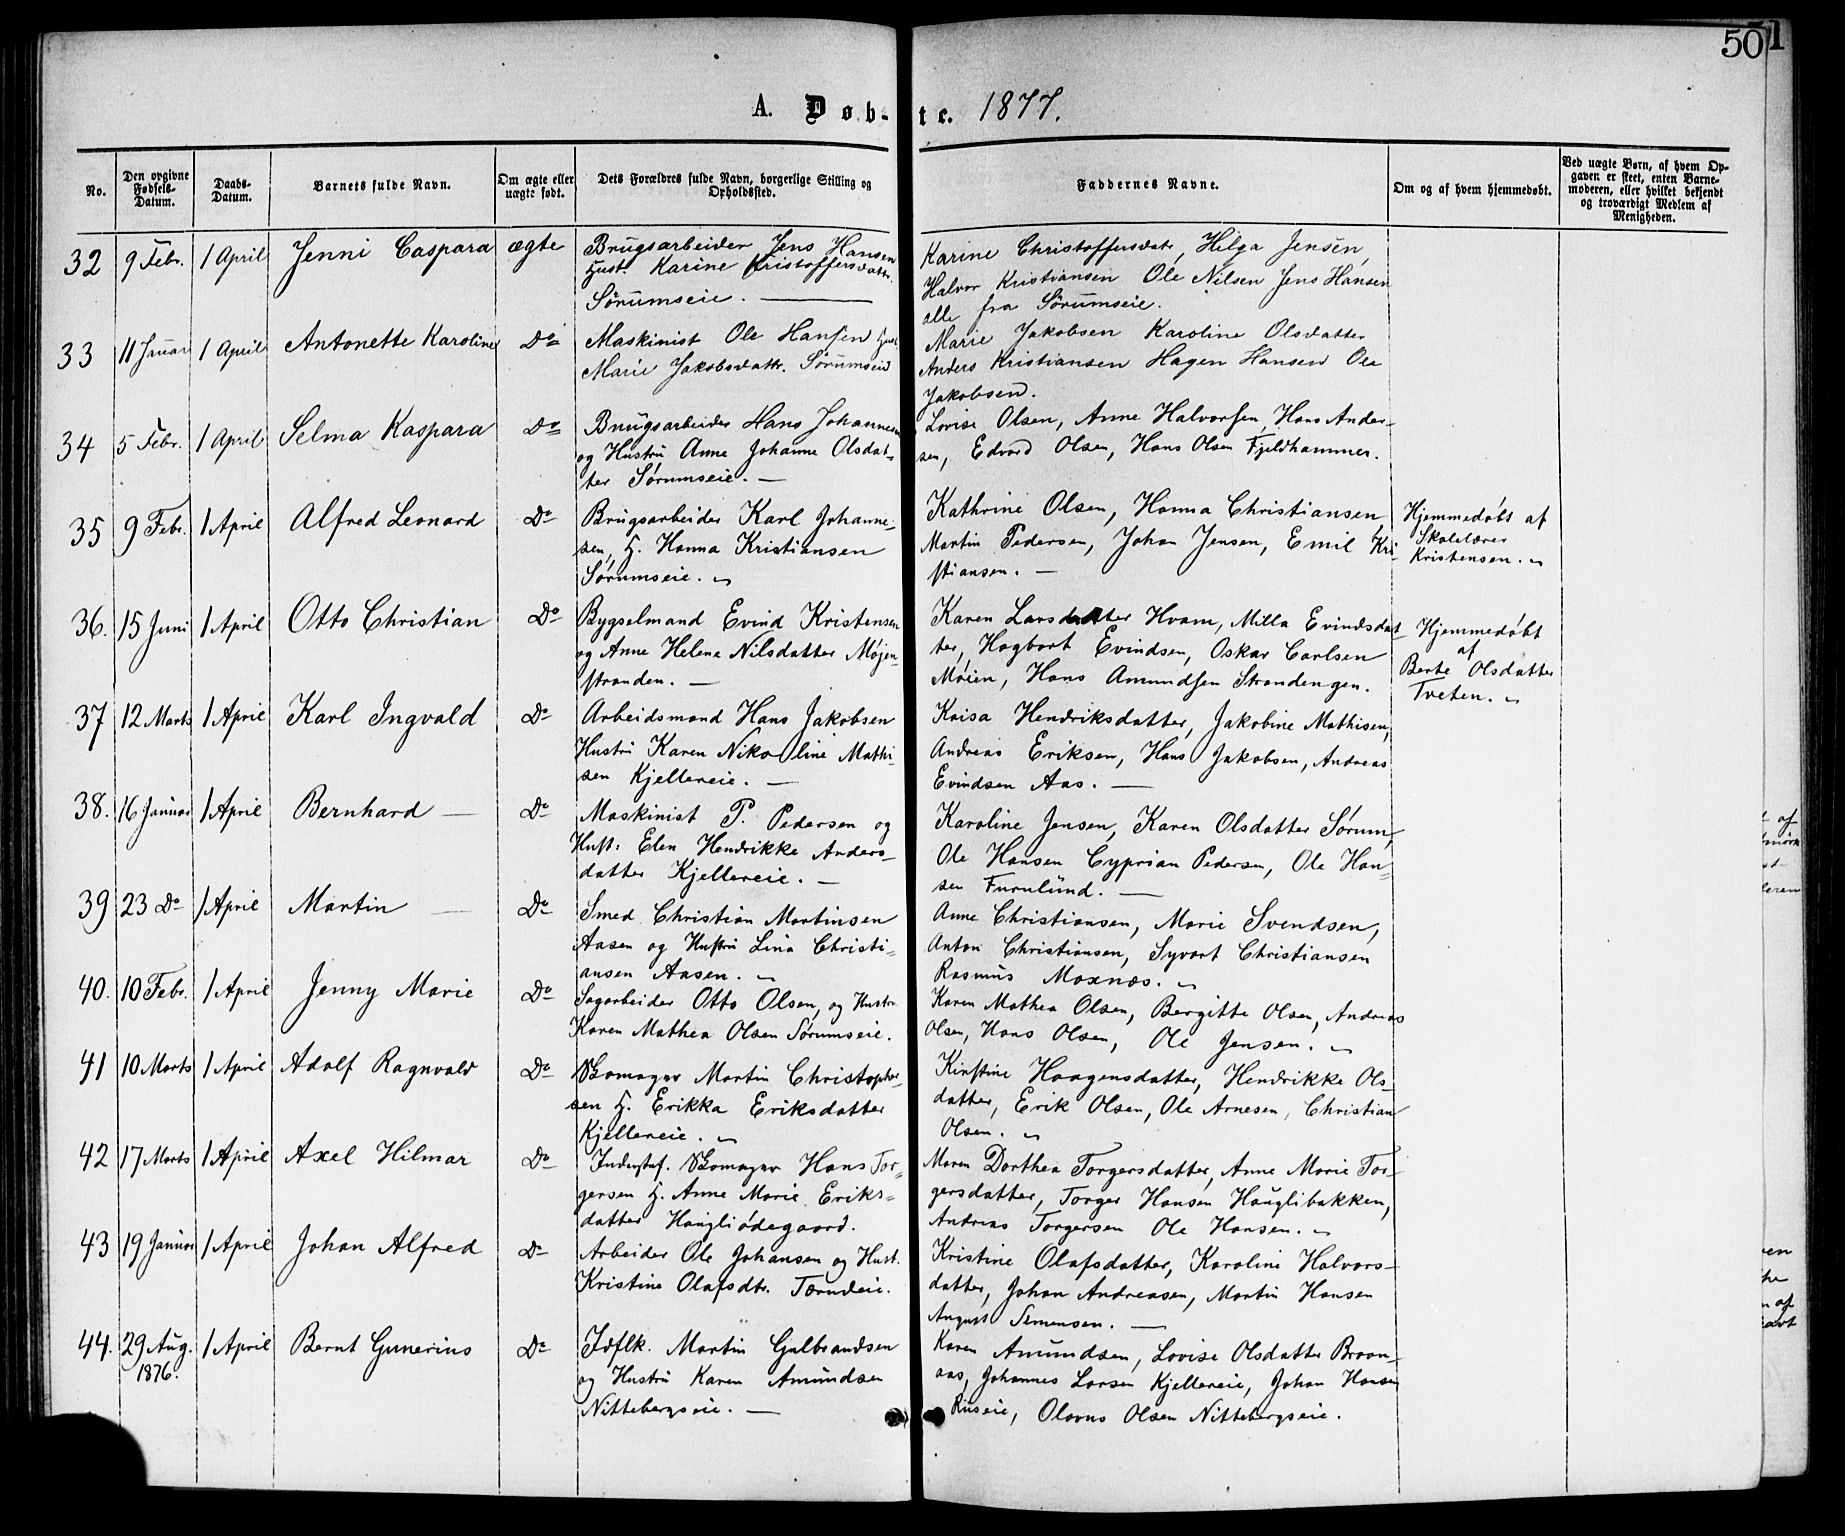 50
1
A. Døb-te. 1877.
No.
Den opgivne Fødsels-Datum.
Daabs-Datum.
Barnets fulde Navn.
Om ægte eller uægte født.
Dets Forældres fulde Navn, borgerlige Stilling og Opholdssted.
Faddernes Navne.
Om og af hvem hjemmedøbt.
Ved uægte Børn, af hvem Opgaven er skeet, enten Barnemoderen, eller hvilket bekjendt og troværdigt Medlem af Menigheden.
32 9 Febr. 1 April Jenni Caspara ægte
Brugsarbeider Jens Hansen
Hust. Karine Kristoffersdattr.
Sörumseie.
Karine Christoffersdatr, Hilga Jensen,
Halvor Kristiansen Ole Nilsen Jens Hansen
alle fra Sörumseie.
33 11 Januar 1 April Antonette Karoline Do
Maskinist Ole Hansen Hust
Marie Jakobsdattr. Sörumseie
Marie Jakobsen Karoline Olsdatter
Anders Kristiansen Hagen Hansen Ole
Jakobsen.
34 5 Febr. 1 April Selma Kaspara Do
Brugsarbeider Hans Johannesen
og Hustru Anne Johanne Olsdat-
ter Sørumseie.
Lovise Olsen, Anne Halvorsen, Hans Ander-
sen, Edvard Olsen, Hans Olsen Fjeldhammer.
35 9 Febr. 1 April Alfred Leonard Do
Brugsarbeider Karl Johanne-
sen, H. Hanna Kristiansen
Sørumseie.
Kathrine Olsen, Hanna Christiansen,
Martin Pedersen, Johan Jensen, Emil Kri-
stiansen.
Hjemmedøbt af
Skolelærer
Kristensen.
36. 15 Juni 1 April Otto Christian Do
Bygselmand Evind Kristensen
og Anne Helene Nilsdatter Møjen-
stranden.
Karen Larsdatter Hvam, Milla Evindsdat-
ter, Hagbart Evindsen, Oskar Carlsen
Møien, Hans Amundsen Strandengen.
Hjemmedøbt
af
Berte Olsdatter
Tveten.
37 12 Marts 1 April Karl Ingvald Do
Arbeidsmand Hans Jakobsen
Hustru Karen Nikoline Mathi-
sen Kjellereie.
Kaisa Hendriksdatter, Jakobine Mathisen,
Andreas Eriksen, Hans Jakobsen, Andreas
Evindsen Aas.
38. 16 Januar 1 April Bernhard Do
Maskinist P. Pedersen og
Hust: Elen Hendrikke Anders-
datter Kjellereie.
Karoline Jensen, Karen Olsdatter Sørum,
Ole Hansen Cyprian Pedersen, Ole Han-
sen Furulund.
39 23 Do 1 April Martin Do
Smed Christian Martinsen
Aasen og Hustru Lina Christi-
ansen Aasen.
Anne Christiansen, Marie Svendsen,
Anton Christiansen, Syvart Christiansen
Rasmus Moxnæs.
40. 10 Febr. 1 April Jenny Marie Do
Sagarbeider Otto Olsen, og Hustr.
Karen Mathea Olsen Sørumseie.
Karen Mathea Olsen, Bergitte Olsen, Andreas
Olsen, Hans Olsen, Ole Jensen.
41 10 Marts 1 April Adolf Ragnvald Do
Skomager Martin Christopher-
sen H. Erikka Eriksdatter
Kjellereie.
Kirstine Haagensdatter, Hendrikke Ols-
datter, Erik Olsen, Ole Arnesen, Christian
Olsen.
42 17 Marts 1 April Axel Hilmar Do
Inderstef. Skomager Hans Tor-
gersen H. Anne Marie Eriks-
datter Haugliødegaard.
Maren Dorthea Torgersdatter, Anne Marie Tor-
gersdatter, Torger Hansen Hauglibakken,
Andreas Torgersen Ole Hansen.
43 19 Januar 1 April Johan Alfred Do
Arbeider Ole Johansen og Hust.
Kristine Olafsdtr. Tærudeie.
Kristine Olafsdatter, Karoline Halvors-
datter, Johan Andreasen, Martin Hansen
August Simensen.
44. 29 Aug. 1876. 1 April Bernt Gunerius Do
Idflk. Martin Gulbrandsen
og Hustru Karen Amundsen
Nittebergseie.
Karen Amundsen, Lovise Olsdatter Braan-
aas, Johannes Larsen Kjellereie, Johan Hansen
Riiseie, Olavus Olsen Nittebergseie.